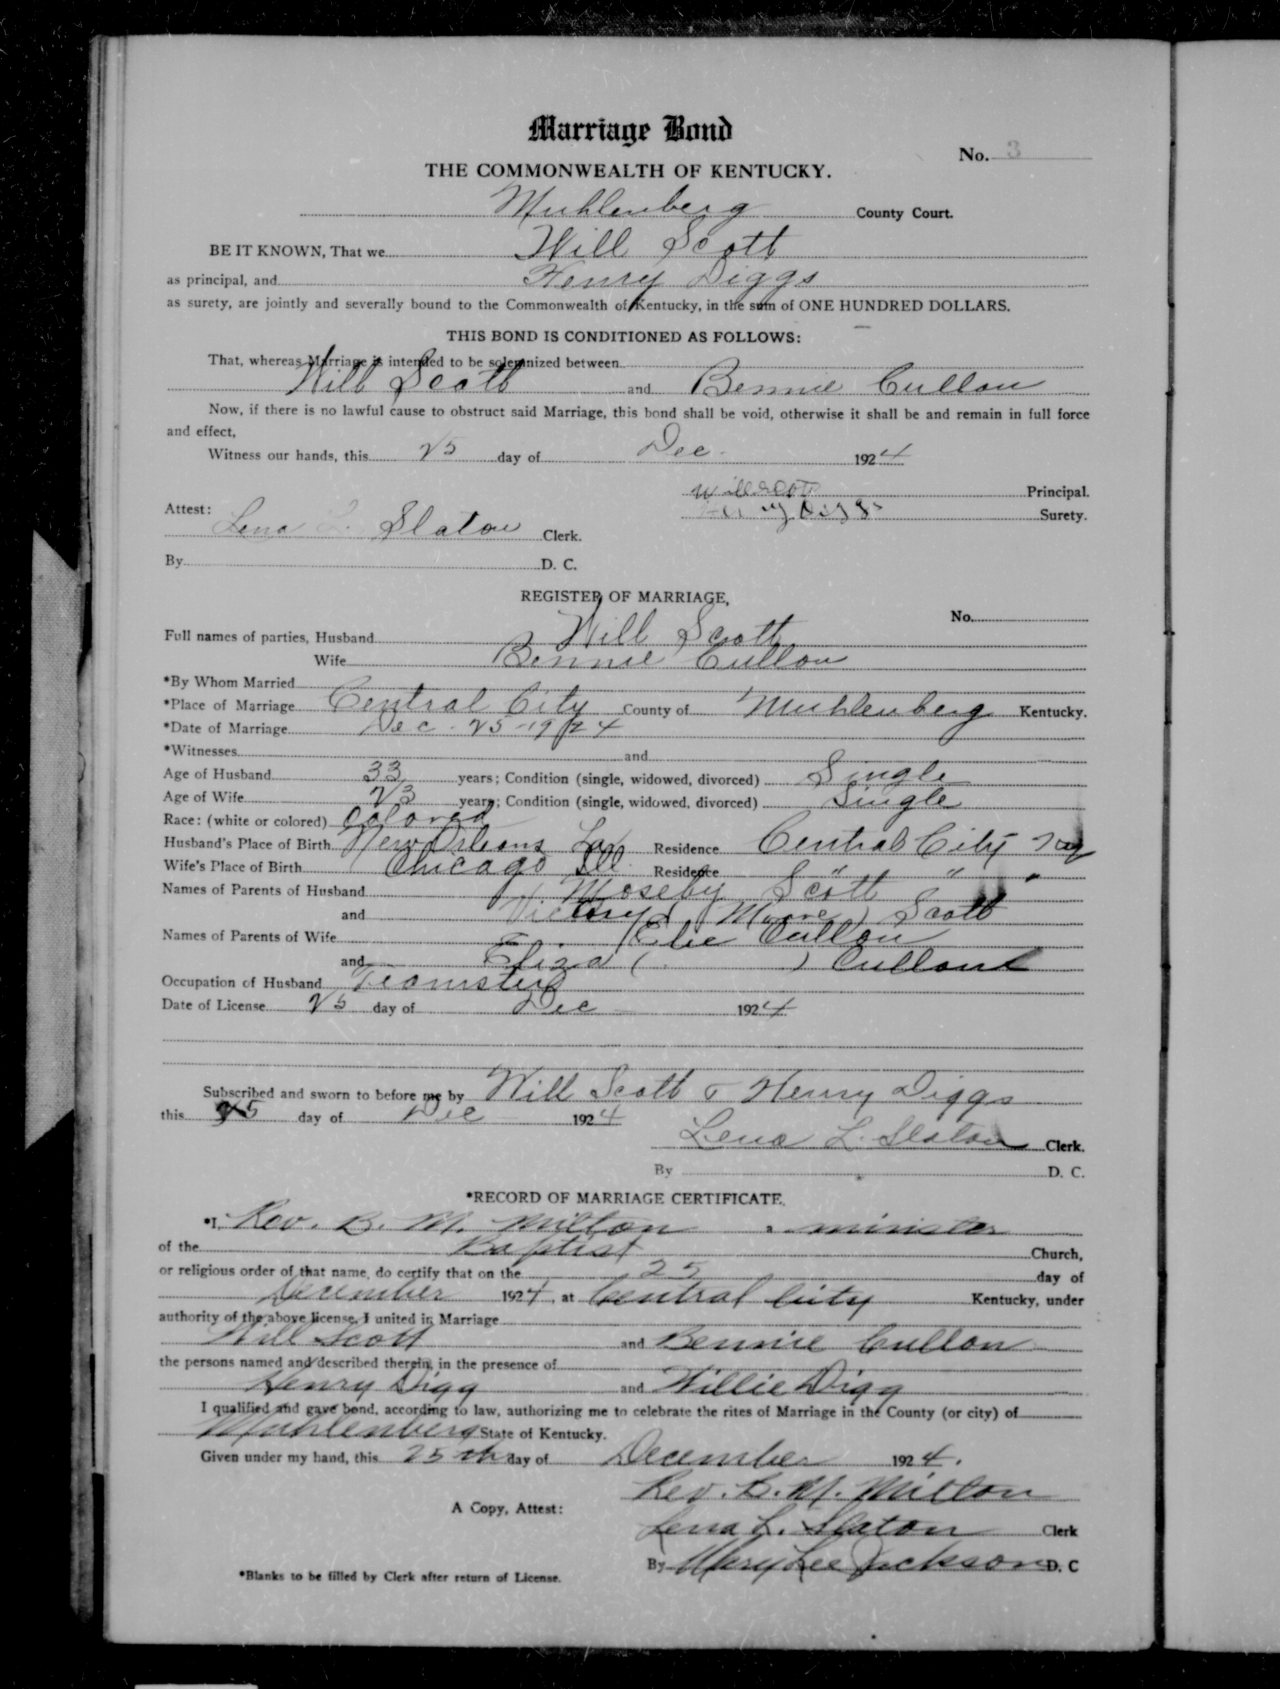 Marriage Bond
No. 3
THE COMMONWEALTH OF KENTUCKY.
Muhlenberg County Court.
BE IT KNOWN, That we Will Scott
as principal, and Henry Diggs
as surety, are jointly and severally bound to the Commonwealth of Kentucky, in the sum of ONE HUNDRED DOLLARS.
THIS BOND IS CONDITIONED AS FOLLOWS:
That, whereas Marriage is intended to be solemnized between
Will Scott and Bennie Cullon
Now, if there is no lawful cause to obstruct said Marriage, this bond shall be void, otherwise it shall be and remain in full force
and effect,
Witness our hands, this 25 day of Dec. 1924
Will Scott Principal.
Attest: Henry Diggs Surety.
Lena L. Slaton Clerk.
By D. C.
REGISTER OF MARRIAGE,
No.
Full names of parties, Husband Will Scott
Wife Bennie Cullon
*By Whom Married
*Place of Marriage Central City County of Muhlenberg Kentucky.
*Date of Marriage Dec. 25-1924
*Witnesses and
Age of Husband 33 years; Condition (single, widowed, divorced) Single
Age of Wife 23 years; Condition (single, widowed, divorced) Single
Race: (white or colored) Colored
Husband's Place of Birth New Orleans La Residence Central City Ky
Wife's Place of Birth Chicago Ill Residence " " "
Names of Parents of Husband Moseby Scott
and ( Moore ) Scott
Names of Parents of Wife Cullon
and Eliza ( ) Cullon
Occupation of Husband Teamster
Date of License 25 day of Dec 1924
Subscribed and sworn to before me by Will Scott & Henry Diggs
this 25 day of Dec 1924
Lena L. Slaton Clerk.
By D. C.
*RECORD OF MARRIAGE CERTIFICATE.
*I, Rev. B. M. Milton a minister
of the Baptist Church,
or religious order of that name, do certify that on the 25 day of
December 1924, at Central City Kentucky, under
authority of the above license, I united in Marriage
Will Scott and Bennie Cullon
the persons named and described therein, in the presence of
Henry Digg and Willie Digg
I qualified and gave bond, according to law, authorizing me to celebrate the rites of Marriage in the County (or city) of
Muhlenberg State of Kentucky.
Given under my hand, this 25th day of December 1924.
Rev. B. M. Milton
A Copy, Attest:
Lena L. Slaton Clerk
By Mary Lee Jackson D. C
*Blanks to be filled by Clerk after return of License.